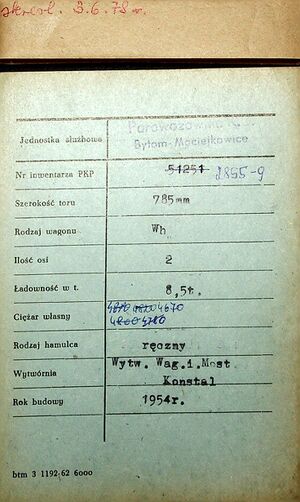 skreśl. 3.6.78 r.
Jednostka służbowa
Bytom-Maciejkowice
Nr inwentarza PKP 51251 2855-9
Szerokość toru 785mm
Rodzaj wagonu Wh
Ilość osi 2
Ładowność w t. 8,5t.
Ciężar własny 4670
Rodzaj hamulca ręczny
Wytwórnia Wytw. Wag.i.Most
Konstal
Rok budowy 1954r.
btm 3 1192-62 6000